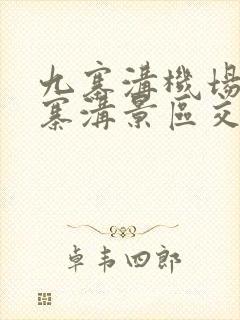 九寨溝機場
寨溝景區交
卓韦四郎